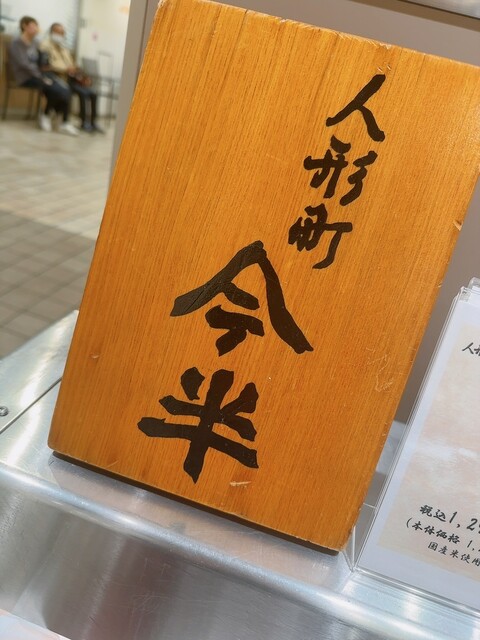 人形町
今半
税込1,2
(本体価格 1,
国産米使用